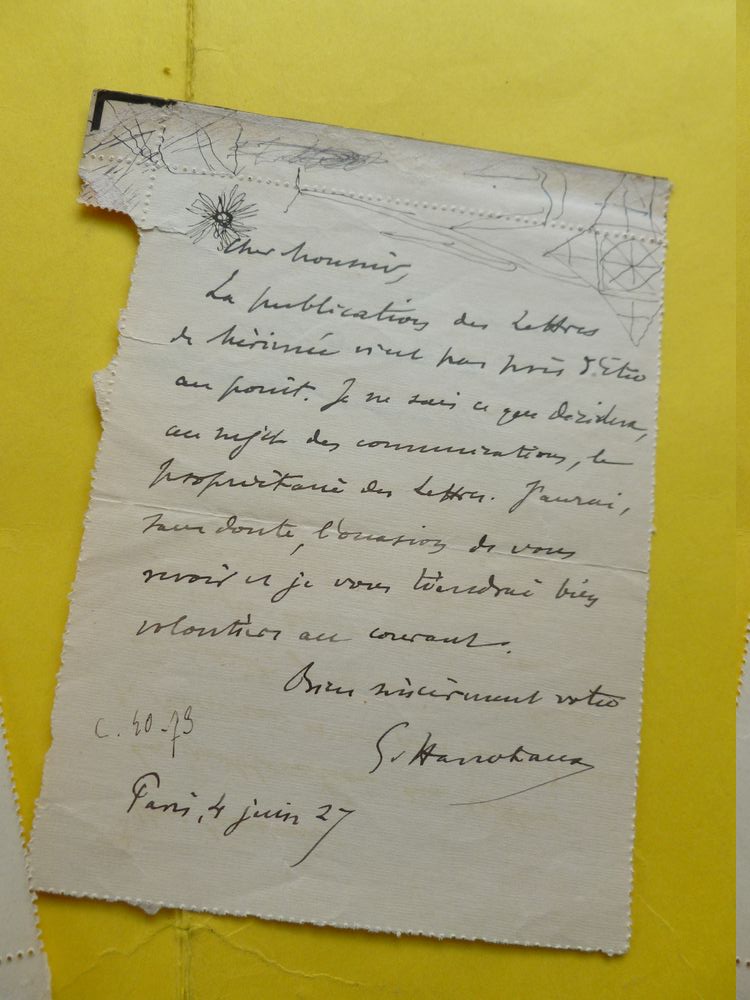 Cher monsieur,
La publication des Lettres
de Mérimée n'est pas près d'être
au point. Je ne sais ce que décidera,
au sujet des communications, le
propriétaire des Lettres. J'aurai,
sans doute, l'occasion de vous
revoir et je vous tiendrai bien
volontiers au courant.
Bien sincèrement votre
G. Hanotaux
C. 40-73
Paris, 4 juin 27